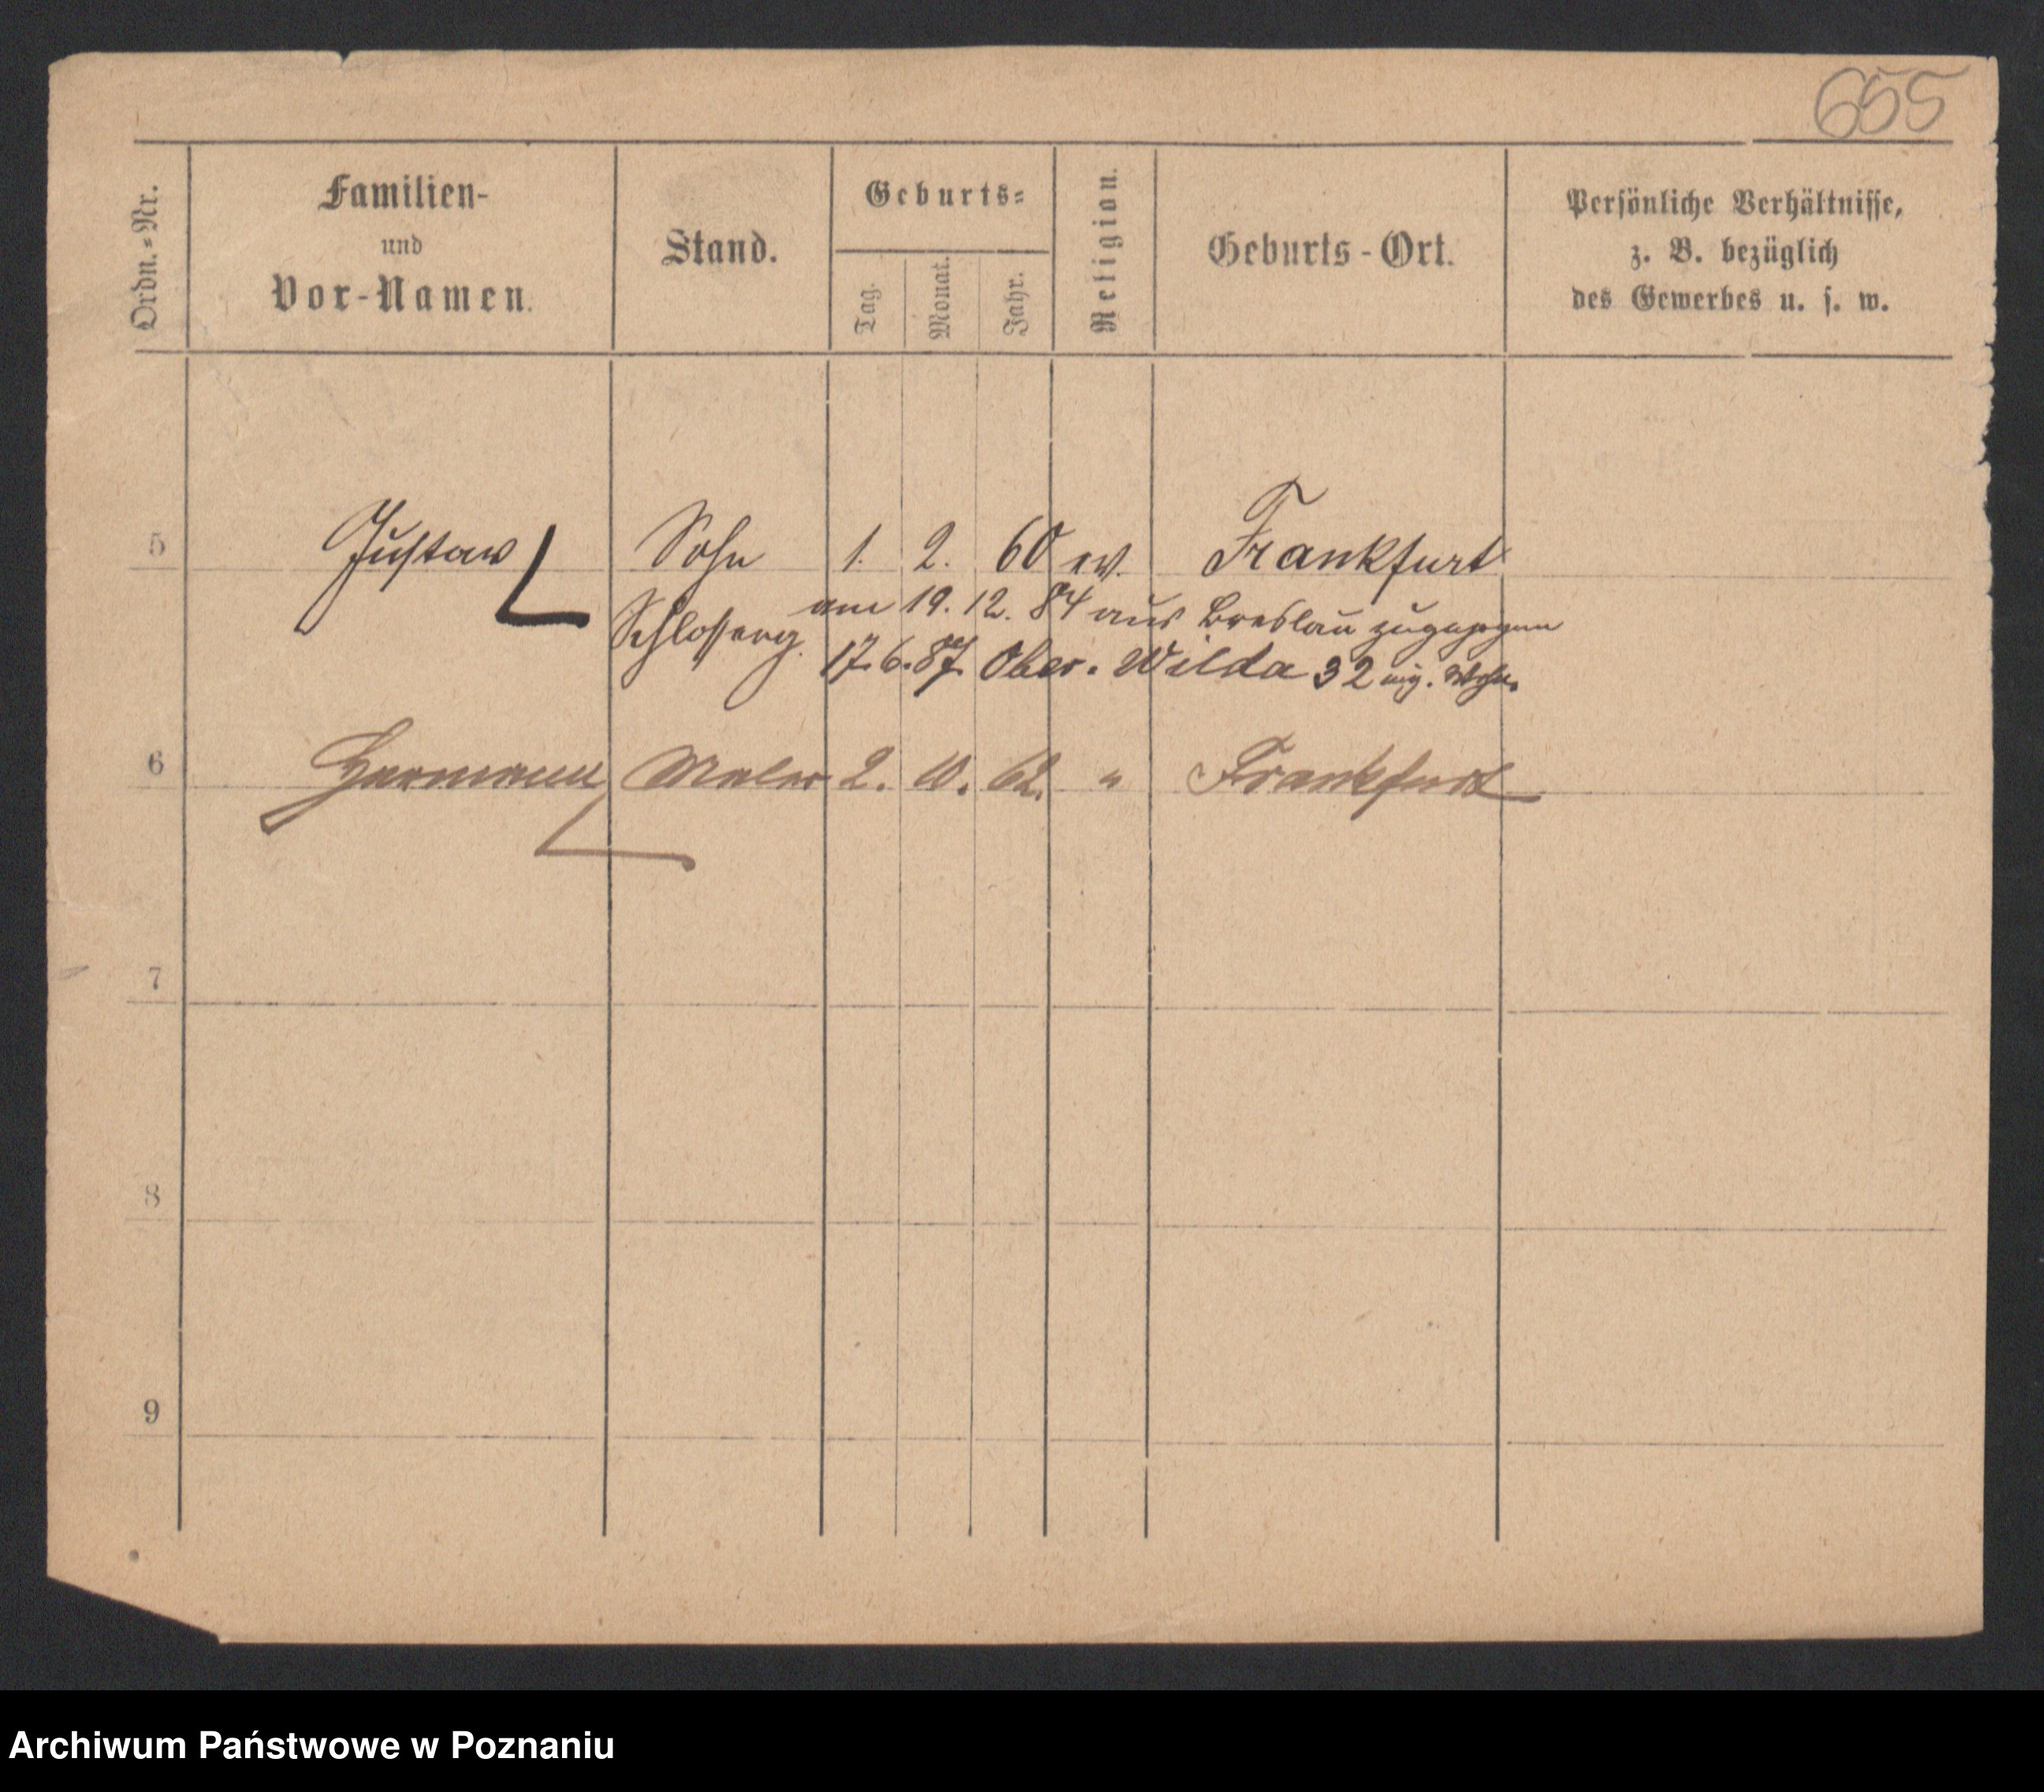 655
Ordn.=Nr.
Familien-
und
Vor-Namen.
Stand.
Geburts=
Tag.
Monat.
Jahr.
Religion.
Geburts-Ort.
Persönliche Verhältnisse,
z. B. bezüglich
des Gewerbes u. s. w.
5 Gustaw Sohn 1. 2. 60 ev. Frankfurt
Schlosserg. am 19. 12. 84 aus Breslau zugezogen
17.6.87. Ober. Wilda 32 eig. Whn.
6 Hermann Maler 2. 10. 62. " Frankfurt
7
8
9
Archiwum Państwowe w Poznaniu